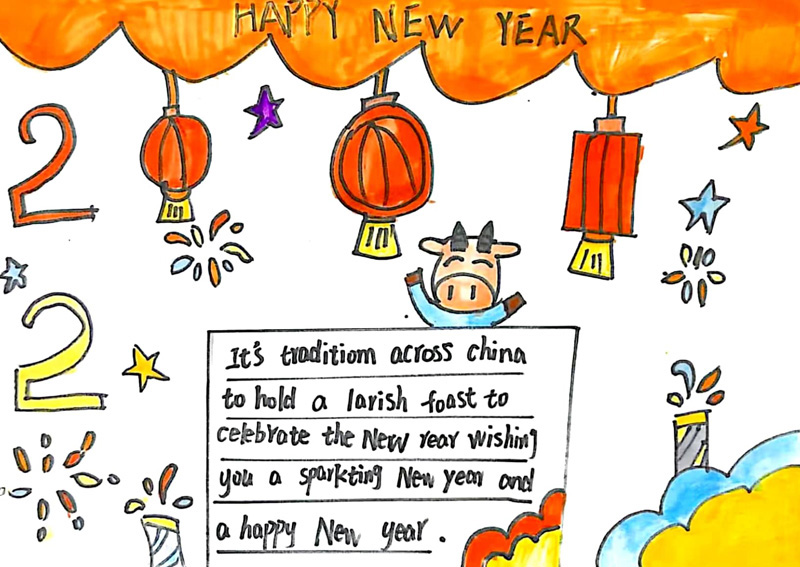 HAPPY NEW YEAR
2
2
It's traditiom across china
to hold a larish foast to
celebrate the New rear wishing
you a sparkting New year and
a happy New year.